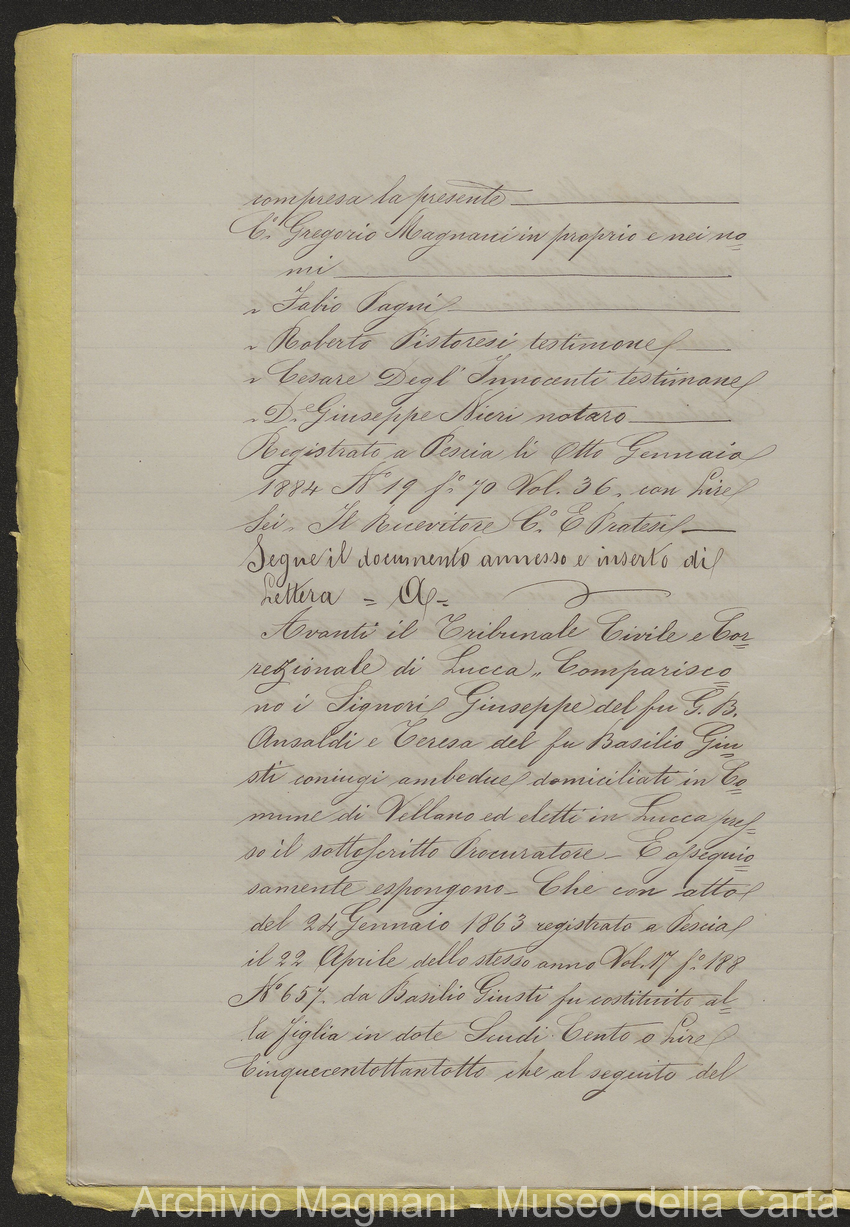 compresa la presente
C.o Gregorio Magnani in proprio e nei no=
mi
" Fabio Pagni
" Roberto Pistoresi testimone
" Cesare Degl' Innocenti testimone
" D.e Giuseppe Nieri notaro
Registrato a Pescia li Otto Gennaio
1884 No 19 fo 70 Vol. 36. con Lire
Sei. Il Ricevitore C.o E Pratesi
Segue il documento annesso e inserto di
Lettera = A =
Avanti il Tribunale Civile e Cor=
rezionale di Lucca " Comparisco=
no i Signori Giuseppe del fu G. B.
Ansaldi e Teresa del fu Basilio Giu=
sti coniugi ambedue domiciliati in Co=
mune di Vellano ed eletti in Lucca pres=
so il sottoscritto Procuratore _ E ossequio=
samente espongono _ Che con atto
del 24 Gennaio 1863 registrato a Pescia
il 22 Aprile dello stesso anno Vol. 17 fo 188
No 657. da Basilio Giusti fu costituito al=
la figlia in dote Scudi Cento o Lire
Cinquecentottantotto che al seguito del
Archivio Magnani - Museo della Carta